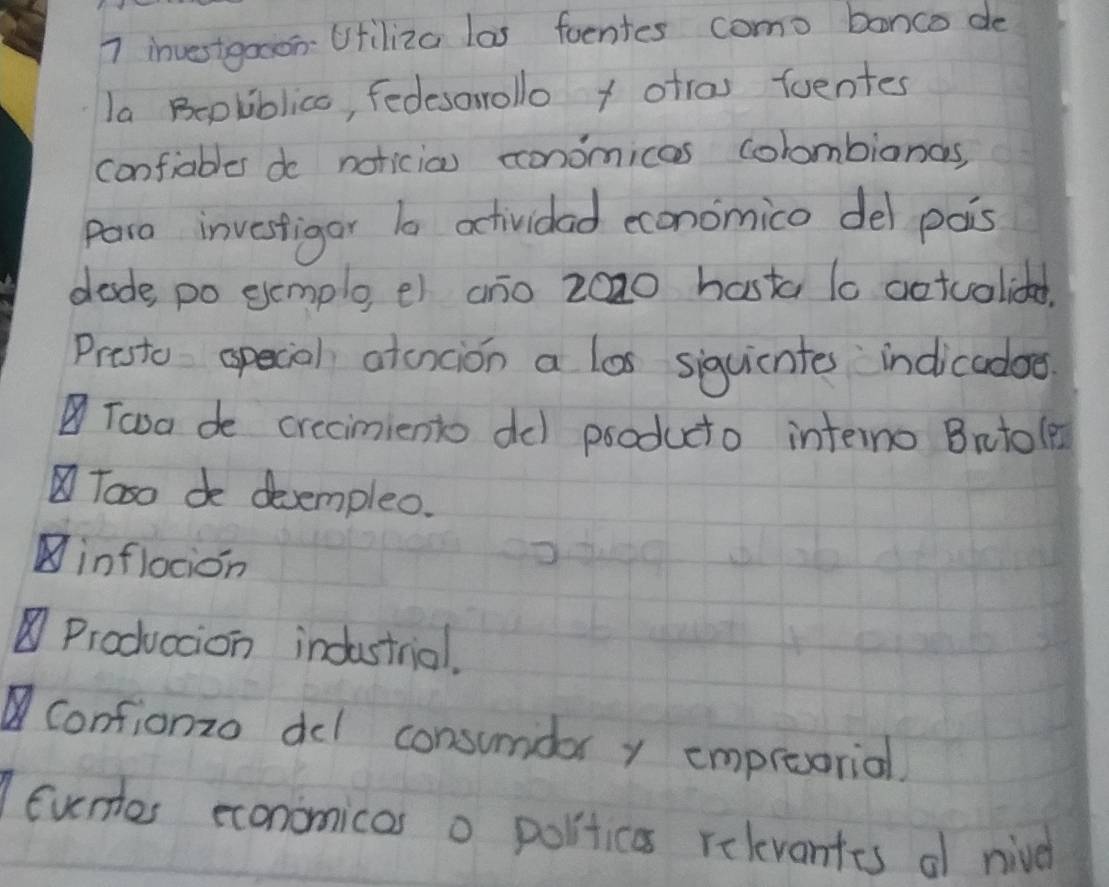 7 investigación: Utiliza las fuentes como banco de
la República, Fedesarrollo y otras fuentes
confiables de noticias económicas colombianas,
para investigar la actividad económica del país
desde, po ejemplo, el año 2020 hasta la actualidad.
Presta especial atención a los siguientes indicadores.
Tasa de crecimiento del producto interno Bruto
Tasa de desempleo.
inflación
Producción industrial.
Confianza del consumidor y empresarial.
Eventos económicos o políticos relevantes al nivel